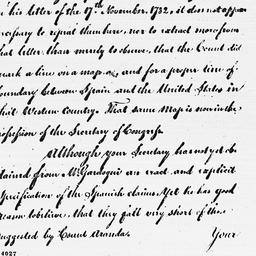 his letter of the 17th November 1782, it does not appear
necessary to repeat them here, nor to extract more from
that letter than merely to observe, that the Count did
mark a line on a map and for a proper line of
boundary between Spain and the United States in
that Western Country. That same Map is now in the
possession of the Secretary of Congress
Although your Secretary has not yet ob
tained from Mr. Gardoqui an exact and explicit
specification of the Spanish claims, Yet he has good
reason to believe, that they fall very short of those
suggested by Count Aranda.
Your
4027